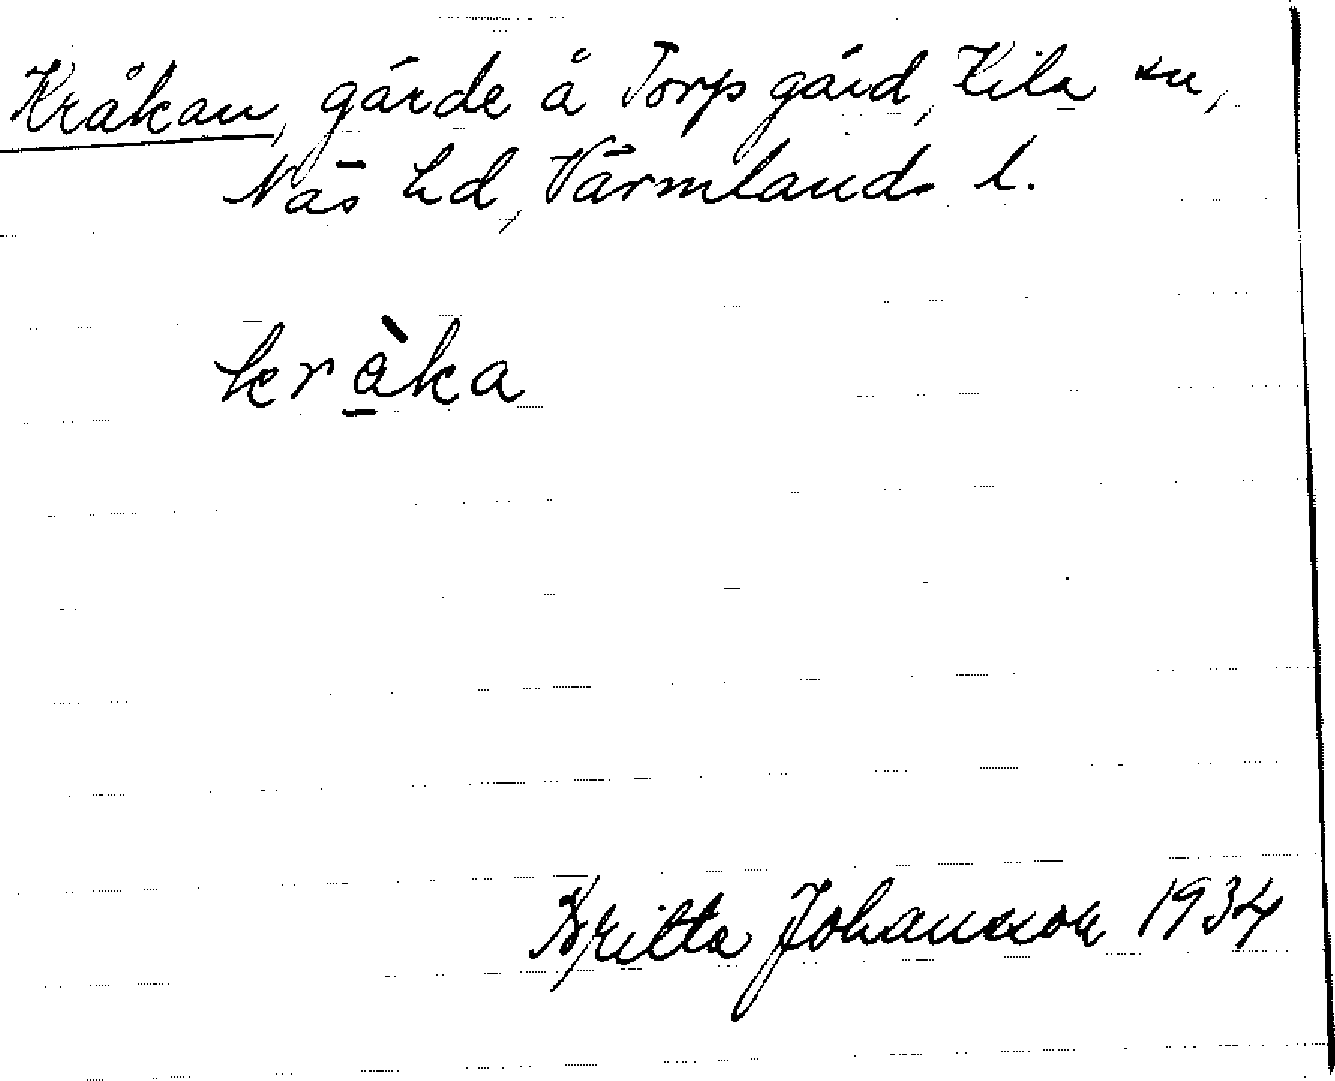 Kråkan, gärde å Torp gård, Kila sn,
Näs hd, Värmlands l.
krå̱̀ka
Britta Johansson 1934